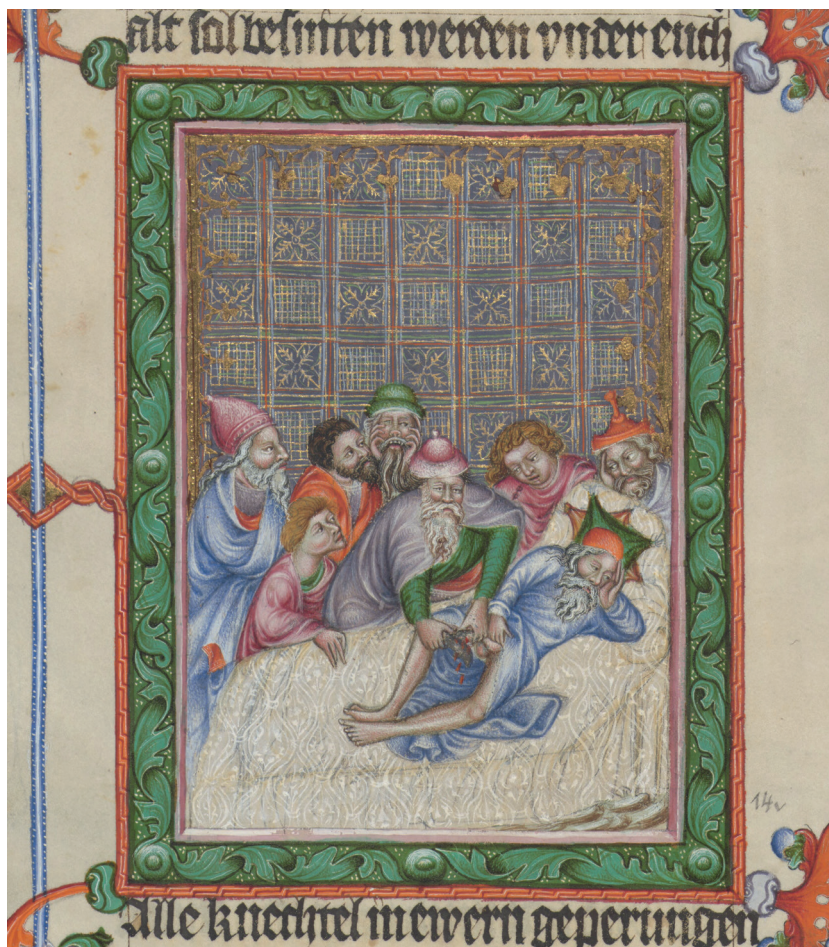 alt sol besniten werden vnder euch
14v
Alle knechtel in ewern geperungen